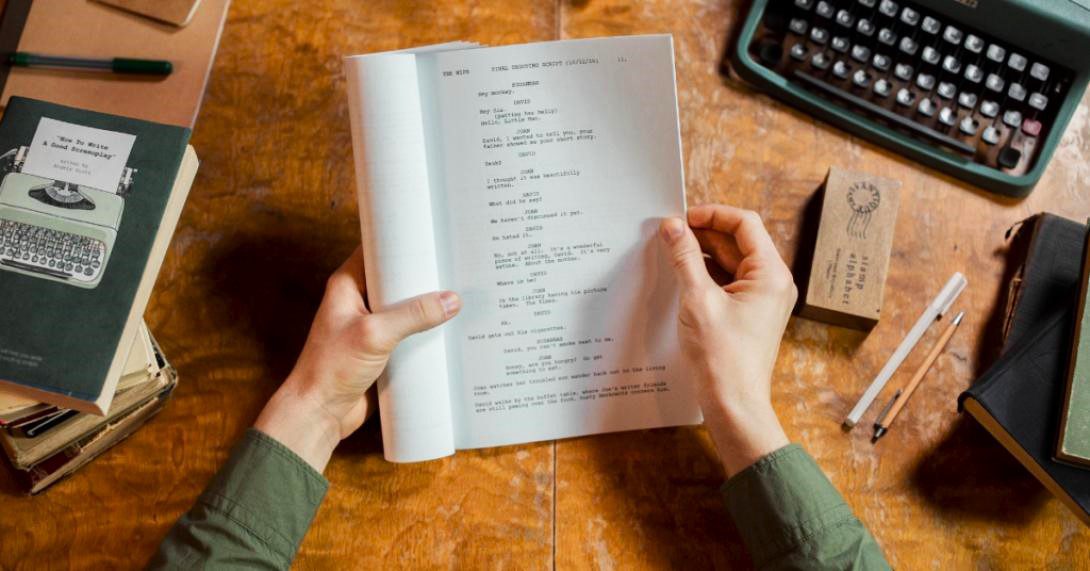 "How To Write
A Good Screenplay"
written by
THE WIFE FINAL SHOOTING SCRIPT (10/12/16) 11.
SUSANNAH
Hey monkey.
DAVID
Hey Sis.
(patting her belly)
Hello, Little Man.
JOAN
David, I wanted to tell you, your
father showed me your short story.
DAVID
Dad?
JOAN
I thought it was beautifully
written.
DAVID
What did he say?
JOAN
We haven't discussed it yet.
DAVID
He hated it.
JOAN
No, not at all. It's a wonderful
piece of writing, David. It's very
mature. About the mother.
DAVID
Where is he?
JOAN
In the library having his picture
taken. The Times.
DAVID
Ah.
David gets out his cigarettes.
SUSANNAH
David, you can't smoke next to me.
JOAN
Honey, are you hungry? Go get
something to eat.
Joan watches her troubled son wander back out to the living
room.
David walks by the buffet table, where Joe's writer friends
are still pawing over the food.
stamp
alphabet